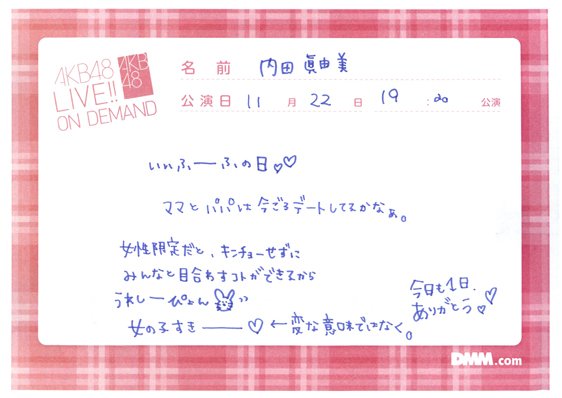 AKB48
LIVE!!
ON DEMAND
AKB
48
名前 内田眞由美
公演日 11月22日 19:00 公演
いいふーふの日♡♡
ママとパパは今ごろデートしてるかなぁ。
女性限定だと、キンチョーせずに
みんなと目合わすコトができるから
うれしーぴょん
女の子すき――♡←変な意味ではなく。
今日も1日、
ありがとう♡♡
DMM.com